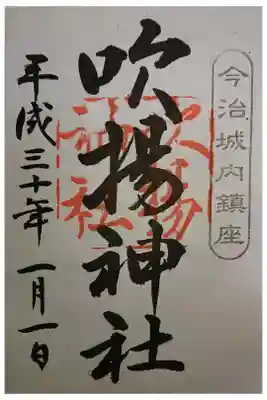 今治城内鎮座
吹揚神社
吹揚神社
平成三十年 一月一日